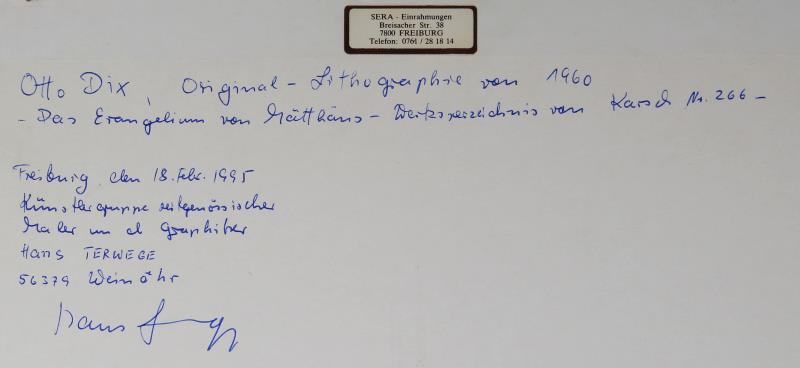 SERA - Einrahmungen
Breisacher Str. 38
7800 FREIBURG
Telefon: 0761 / 28 18 14
Otto Dix, Original - Lithographie von 1960
- Das Evangelium von Mätthäus - Werksverzeichnis von Karsch Nr. 266 -
Freiburg, den 18. Febr. 1995
Künstlergruppe zeitgenössischer
Maler und Graphiker
Hans TERWEGE
56379 Weinähr
Hans